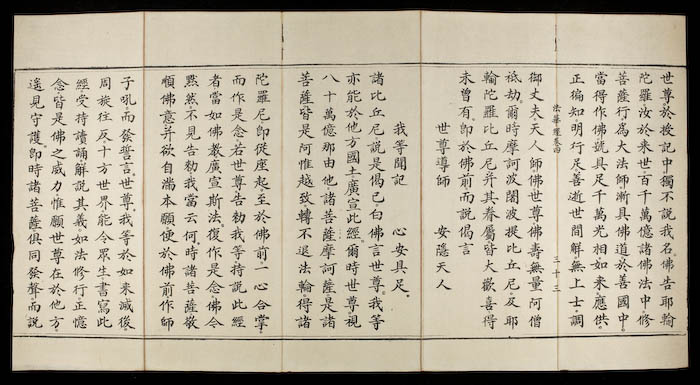 世尊於授記中獨不說我名。佛告耶輸
陀羅汝於來世百千萬億諸佛法中修
菩薩行為大法師漸具佛道於善國中
當得作佛號具足千萬光相如來應供。
正徧知明行足善逝世間解無上士。調
法華經卷四 三十三
御丈夫天人師佛世尊佛壽無量阿僧
祇劫。爾時摩訶波闍波提比丘尼。及耶
輸陀羅比丘尼并其眷屬皆大歡喜得
未曾有。即於佛前而說偈言
世尊導師 安隱天人
我等聞記 心安具足。
諸比丘尼說是偈已白佛言世尊。我等
亦能於他方國土廣宣此經爾時世尊視
八十萬億那由他諸菩薩摩訶薩是諸
菩薩皆是阿惟越致。轉不退法輪得諸
陀羅尼即從座起至於佛前一心合掌。
而作是念若世尊告勅我等持說此經
者當如佛教廣宣斯法復作是念佛今
默然不見告勅我當云何。時諸菩薩敬
順佛意并欲自滿本願便於佛前作師
子吼。而發誓言。世尊我等於如來滅後。
周旋往反十方世界能令眾生書寫此
經受持讀誦解說其義如法修行正憶
念皆是佛之威力惟願世尊在於他方。
遙見守護。即時諸菩薩俱同發聲而說